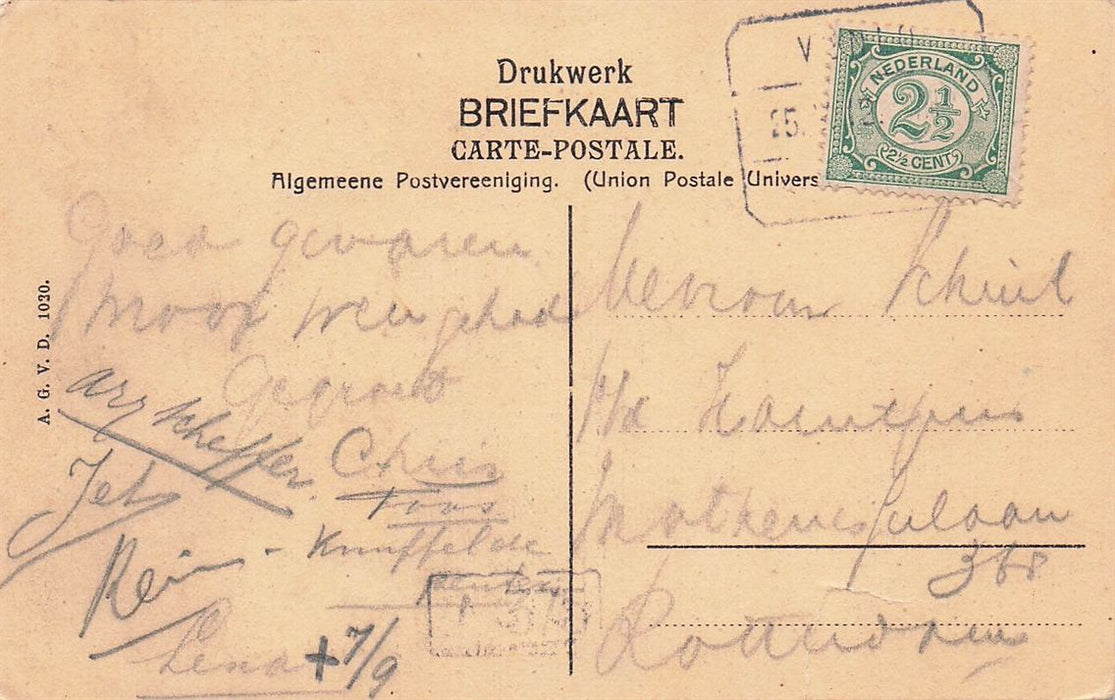 Drukwerk
BRIEFKAART
CARTE-POSTALE.
Algemeene Postvereeniging. (Union Postale Univers
NEDERLAND
2 1/2
2½ CENT
25.
A. G. V. D. 1030.
Goed gevaren
Mooi weer gehad
Gegroet
Chris
Toos
Ary Scheffer.
Jet
Rein
Lena
+ 7/9
Mevrouw Schuit
p/a
Mathenesserlaan
36
Rotterdam